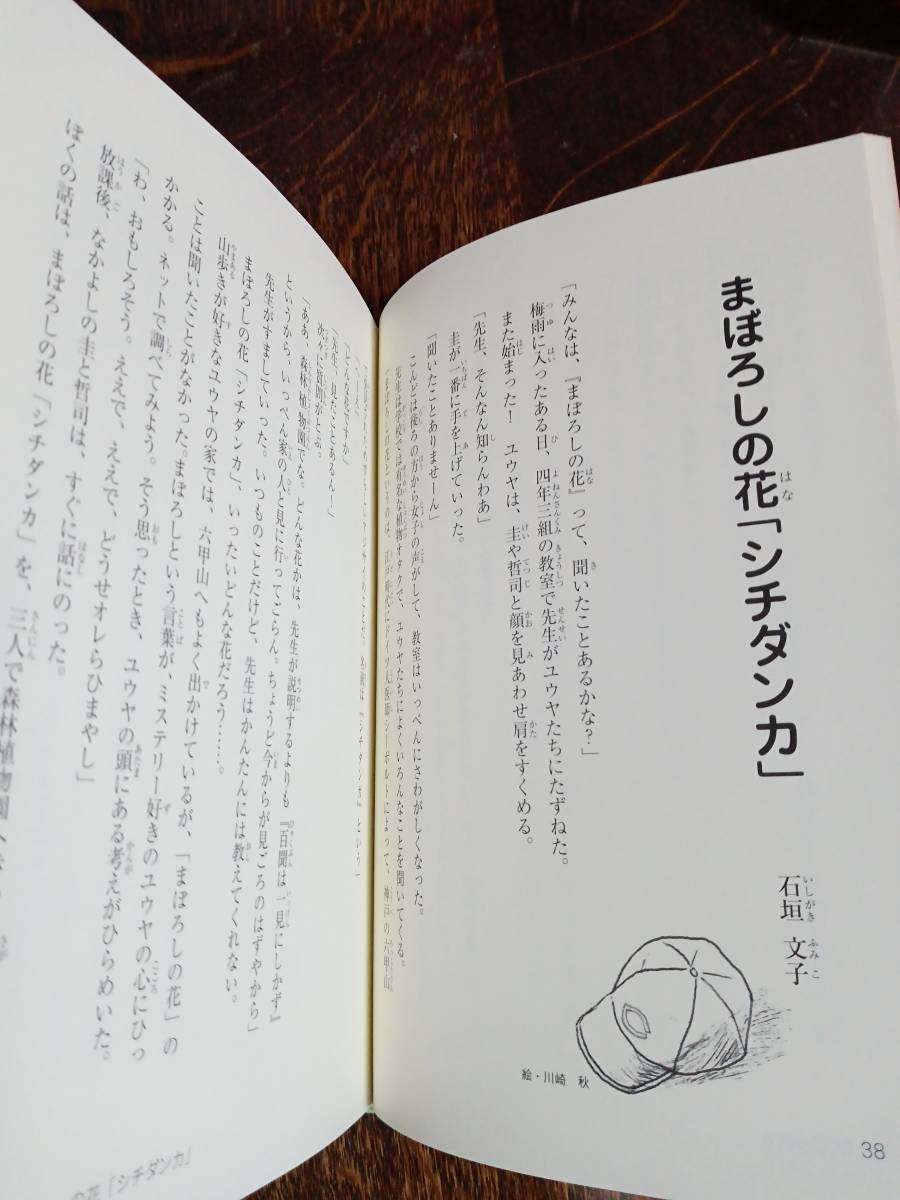 まぼろしの花「シチダンカ」
石垣 文子
絵・川崎 秋
「みんなは、『まぼろしの花』って、聞いたことあるかな?」
梅雨に入ったある日、四年三組の教室で先生がユウヤたちにたずねた。
また始まった! ユウヤは、圭や哲司と顔を見あわせ肩をすくめる。
「先生、そんなん知らんわあ」
圭が一番に手を上げていった。
「聞いたことありませーん」
こんどは後らの方から女子の声がして、教室はいっぺんにさわがしくなった。
先生は学校では有名な植物オタクで、ユウヤたちによくいろんなことを聞いてくる。
まぼろしの花というのは、江戸時代にドイツ人医師シーボルトによって、神戸の六甲山
『シチダンカ』という」
「へーえ」
「どんな花ですか」
「先生、見たことあるん!」
次々に質問がとぶ。
「ああ、森林植物園でな。どんな花かは、先生が説明するよりも『百聞は一見にしかず』
というから、いっぺん家の人と見に行ってごらん。ちょうど今からが見ごろのはずやから」
先生がすましていった。いつものことだけど、先生はかんたんには教えてくれない。
まぼろしの花「シチダンカ」、いったいどんな花だろう……。
山歩きが好きなユウヤの家では、六甲山へもよく出かけているが、「まぼろしの花」の
ことは聞いたことがなかった。まぼろしという言葉が、ミステリー好きのユウヤの心にひっ
かかる。ネットで調べてみよう。そう思ったとき、ユウヤの頭にある考えがひらめいた。
「わ、おもしろそう。ええで、ええで、どうせオレらひまやし」
放課後、なかよしの圭と哲司は、すぐに話にのった。
ぼくの話は、まぼろしの花「シチダンカ」を、三人で森林植物園へ
38
の花「シチダンカ」